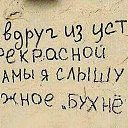 вдруг из уст
рекрасной
амы я слышу
жное "бухнё